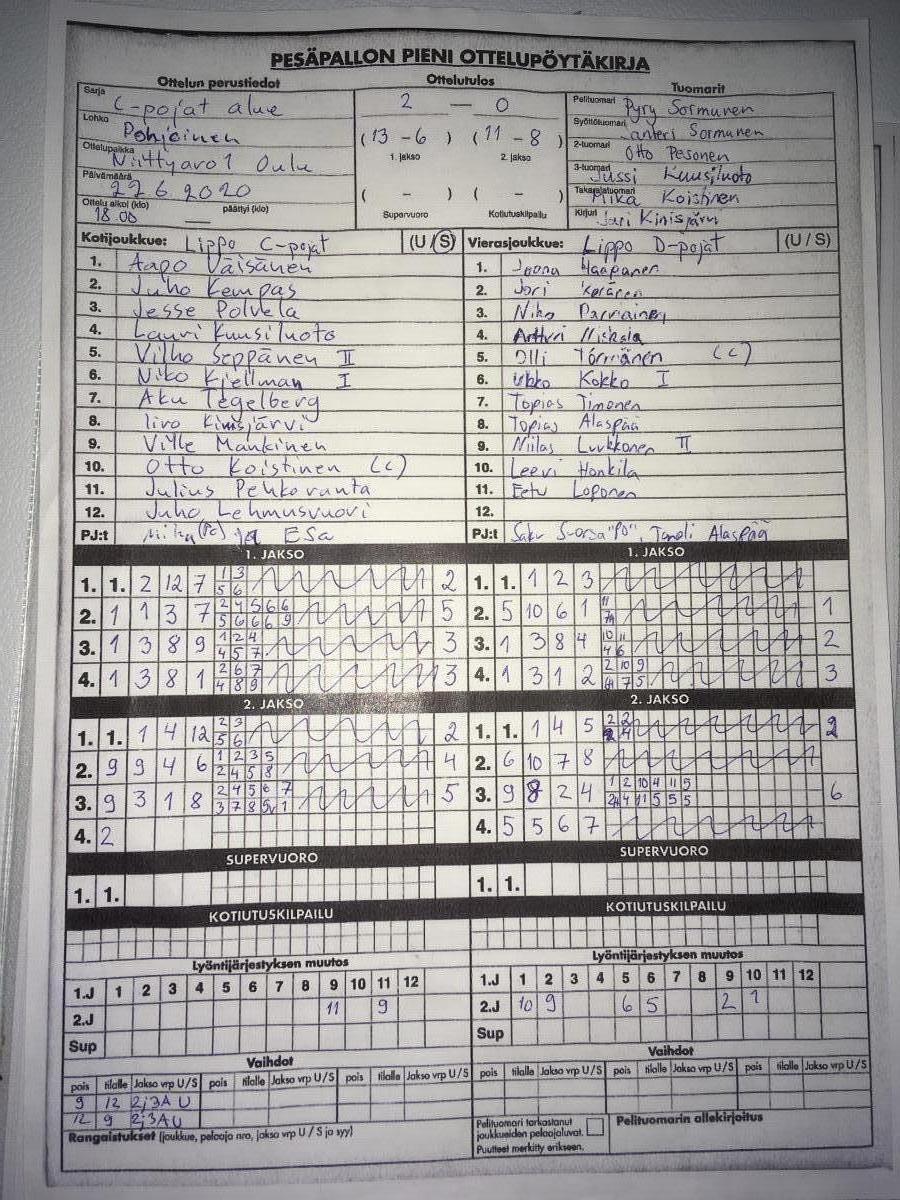 PESÄPALLON PIENI OTTELUPÖYTÄKIRJA
Ottelun perustiedot Ottelutulos Tuomarit
Sarja C-pojat alue
Lohko Pohjoinen
Ottelupaikka Niittyaro1 Oulu
Päivämäärä 22.6.2020
Ottelu alkoi (klo) 18.00 päättyi (klo)
2 — 0
(13 - 6) (11 - 8)
1. jakso 2. jakso
( - ) ( - )
Supervuoro Kotiutuskilpailu
Pelituomari Pyry Sormunen
Syöttötuomari Santeri Sormunen
2-tuomari Otto Pesonen
3-tuomari Jussi Kuusiluoto
Takarajatuomari Mika Koistinen
Kirjuri Jari Kinisjärvi
Kotijoukkue: Lippo C-pojat (U/S)
1. Aapo Väisänen
2. Juho Kempas
3. Jesse Polvela
4. Lauri Kuusiluoto
5. Vilho Seppänen II
6. Niko Kjellman I
7. Aku Tegelberg
8. Iiro Kinisjärvi
9. Ville Mankinen
10. Otto Koistinen (c)
11. Julius Pehkoranta
12. Juho Lehmusvuori
PJ:t Mika (PJ) ja ESa
Vierasjoukkue: Lippo D-pojat (U/S)
1. Joona Haapanen
2. Jori Keränen
3. Niko Parviainen
4. Artturi Niskala
5. Olli Törmänen (c)
6. Ukko Kokko I
7. Topias Timonen
8. Topias Alaspää
9. Niilas Luukkonen II
10. Leevi Honkila
11. Eetu Loponen
12.
PJ:t Saku Suorsa "PJ", Taneli Alaspää
1. JAKSO
1. 1. 2 12 7 1 3 2
5 6
2. 1 1 3 7 2 4 5 6 6 5
5 6 6 6 9
3. 1 3 8 9 1 2 4 3
4 5 7
4. 1 3 8 1 2 6 7 3
4 8 9
1. JAKSO
1. 1. 1 2 3
2. 5 10 6 1 11 1
3. 1 3 8 4 10 11 2
4 6
4. 1 3 1 2 2 10 9 3
7 5
2. JAKSO
1. 1. 1 4 12 2 3 2
5 6
2. 9 9 4 6 1 2 3 5 4
2 4 5 8
3. 9 3 1 8 2 4 5 6 7 5
3 7 8 1
4. 2
2. JAKSO
1. 1. 1 4 5 2 2 2
4
2. 6 10 7 8
3. 9 8 2 4 1 2 10 4 11 5 6
4 11 5 5 5
4. 5 5 6 7
SUPERVUORO
1. 1.
SUPERVUORO
1. 1.
KOTIUTUSKILPAILU
KOTIUTUSKILPAILU
Lyöntijärjestyksen muutos
1.J 1 2 3 4 5 6 7 8 9 10 11 12
2.J 11 9
Sup
Lyöntijärjestyksen muutos
1.J 1 2 3 4 5 6 7 8 9 10 11 12
2.J 10 9 6 5 2 1
Sup
Vaihdot
pois tilalle Jakso vrp U/S pois tilalle Jakso vrp U/S pois tilalle Jakso vrp U/S
9 12 2j3A U
12 9 2j3A U
Rangaistukset (joukkue, pelaaja nro, jakso vrp U / S ja syy)
Vaihdot
pois tilalle Jakso vrp U/S pois tilalle Jakso vrp U/S pois tilalle Jakso vrp U/S
Pelituomari tarkastanut
joukkueiden pelaajaluvat.
Puutteet merkitty erikseen.
Pelituomarin allekirjoitus